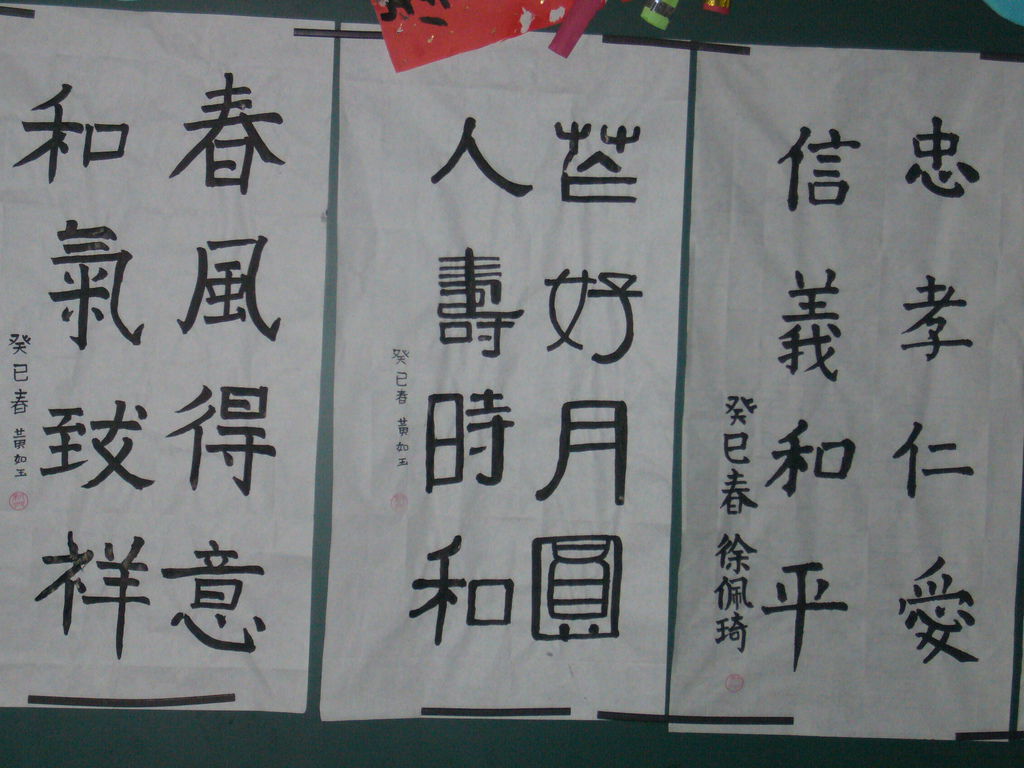 忠孝仁愛
信義和平
癸巳春 徐佩琦
花好月圓
人壽時和
癸巳春 黃如玉
春風得意
和氣致祥
癸巳春 黃如玉